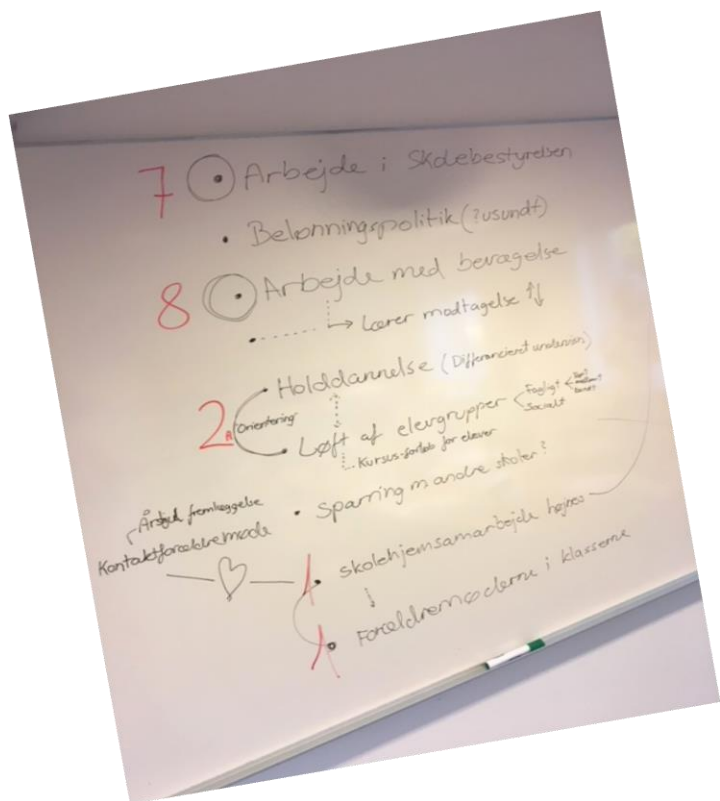 7 Arbejde i Skolebestyrelsen
Belønningspolitik (?usundt)
8 Arbejde med bevægelse
Lærer modtagelse
Holddannelse (Differentieret undervisn)
2 Orientering
Løft af elevgrupper
Fagligt
Socialt
Kursus-forløb for elever
Sparring m andre skoler?
fremlæggelse
Kontaktforældremøde
1 skolehjemsamarbejde højnes
1 Forældremøderne i klasserne